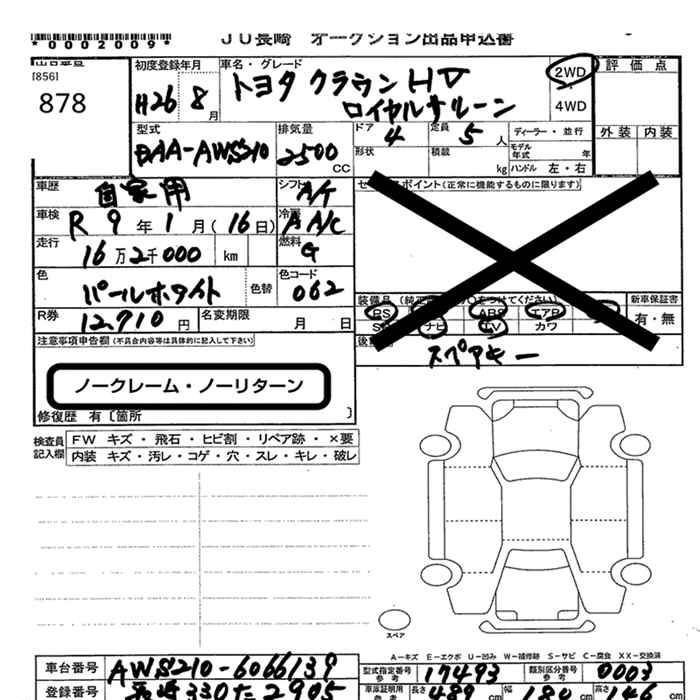 *0002009* JU長崎 オークション出品申込書
[856]
878
初度登録年月 車名・グレード 評価点
H26 8月 トヨタ クラウン HV ロイヤルサルーン 2WD 4WD
外装 内装
型式 排気量 ドア 定員 ディーラー・並行
DAA-AWS210 2500 CC 4 5人 モデル年式 年
形状 積載 kg ハンドル 左・右
車歴 自家用 シフト A/T
車検 R9年1月(16日) 冷房 A A/C
走行 16万2千000 km 燃料 G
色 パールホワイト 色替 色コード 062
R券 12,710円 名変期限 月 日
セールスポイント(正常に機能するものに限ります)
PS ABS エアB 新車保証書
ナビ TV カワ 有・無
スペアキー
注意事項申告欄(不具合内容等は具体的に記入して下さい)
ノークレーム・ノーリターン
修復歴 有〔箇所 〕
検査員記入欄 FW キズ・飛石・ヒビ割・リペア跡・×要
内装 キズ・汚レ・コゲ・穴・スレ・キレ・破レ
スペア
A-キズ E-エクボ U-凹み W-補修跡 S-サビ C-腐食 XX-交換済
車台番号 AWS210-6066139 型式指定番号参考 17493 類別区分番号参考 0003
登録番号 長崎330た2905 車庫証明用参考 長さ 489cm 幅 180cm 高さ 146cm